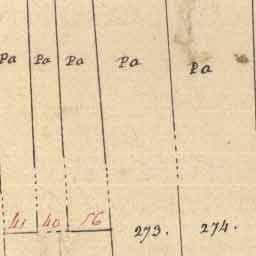 Pa Pa Pa Pa Pa
41 40 56 273. 274.